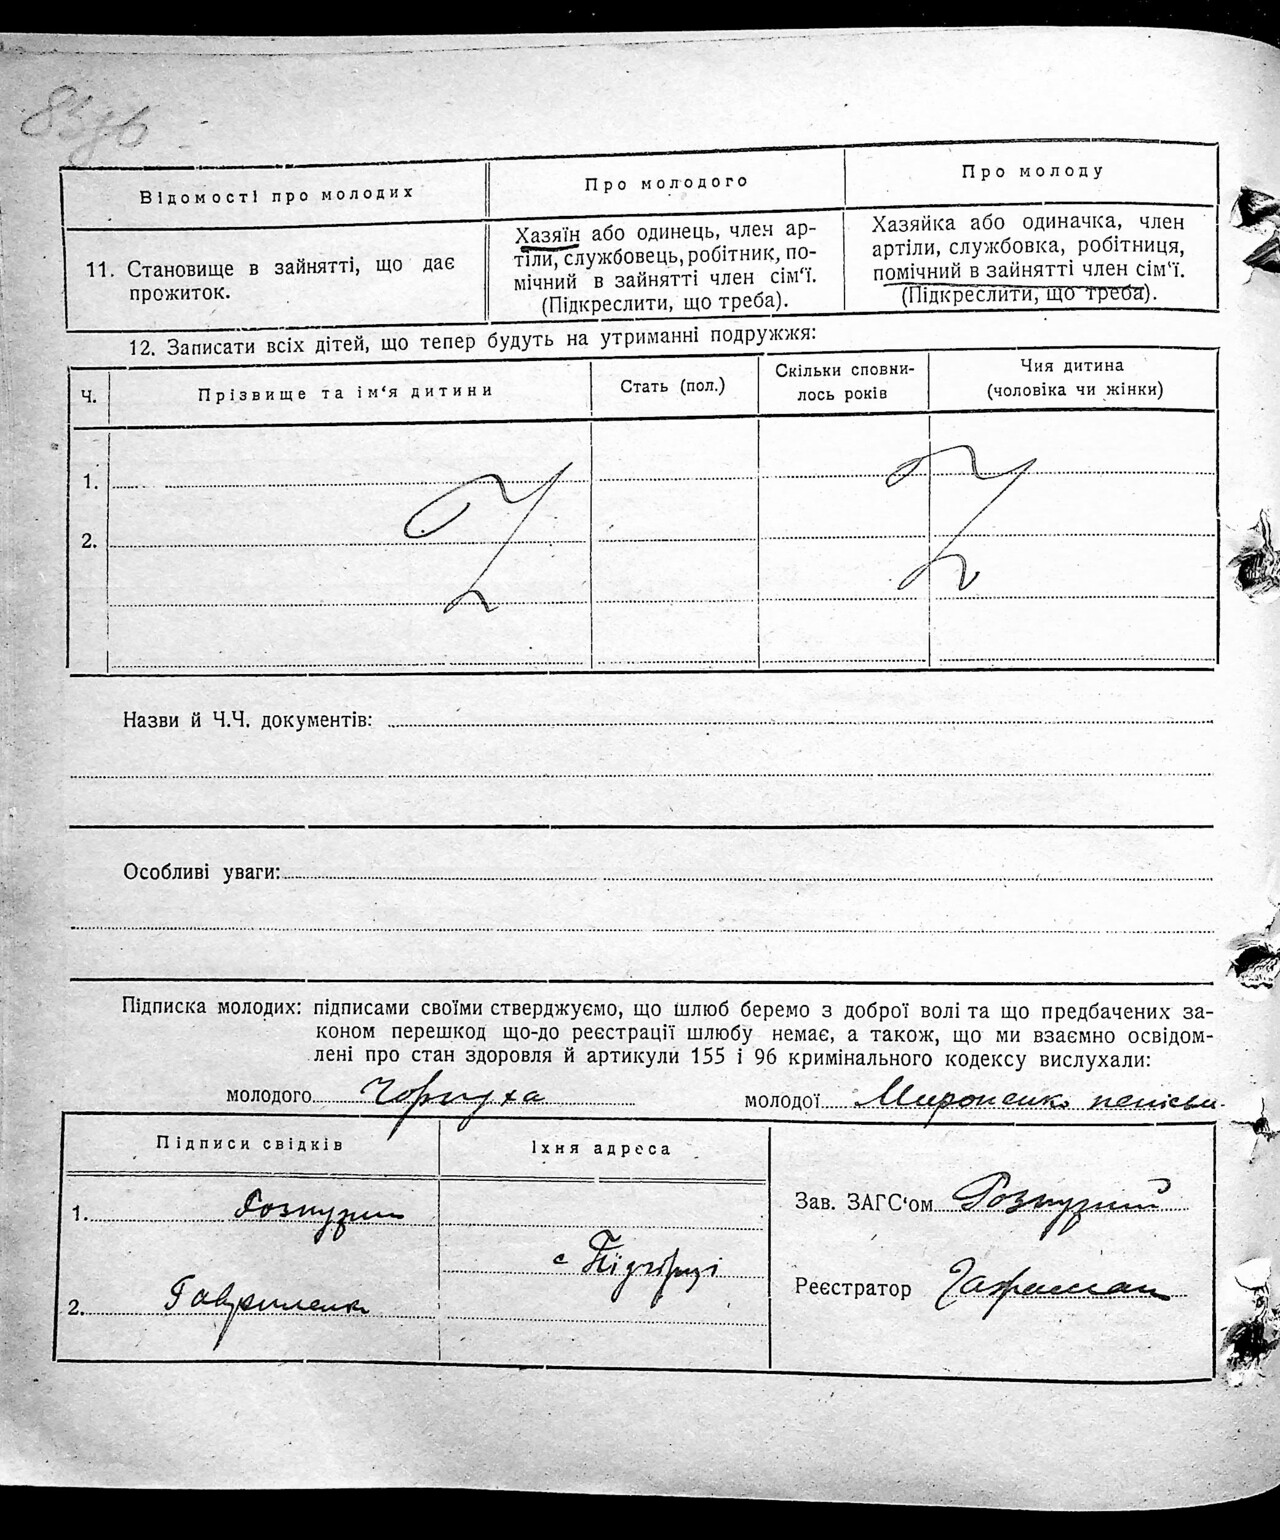 Відомості про молодих
Про молодого
Про молоду
11. Становище в зайнятті, що дає
прожиток.
Хазяїн або одинець, член ар-
тіли, службовець, робітник, по-
мічний в зайнятті член сім'ї.
(Підкреслити, що треба).
Хазяйка або одиначка, член
артіли, службовка, робітниця,
помічний в зайнятті член сім'ї.
(Підкреслити, що треба).
12. Записати всіх дітей, що тепер будуть на утриманні подружжя:
Ч.
Прізвище та ім'я дитини
Стать (пол.)
Скільки сповни-
лось років
Чия дитина
(чоловіка чи жінки)
1.
2.
Назви й Ч.Ч. документів:
Особливі уваги:
Підписка молодих: підписами своїми стверджуємо, що шлюб беремо з доброї волі та що предбачених за-
коном перешкод що-до реєстрації шлюбу немає, а також, що ми взаємно освідом-
лені про стан здоровля й артикули 155 і 96 кримінального кодексу вислухали:
молодого
молодої Мироненко
Підписи свідків
Їхня адреса
1.
Зав. ЗАГС'ом
с Підгірці
2. Гавриленко
Реєстратор